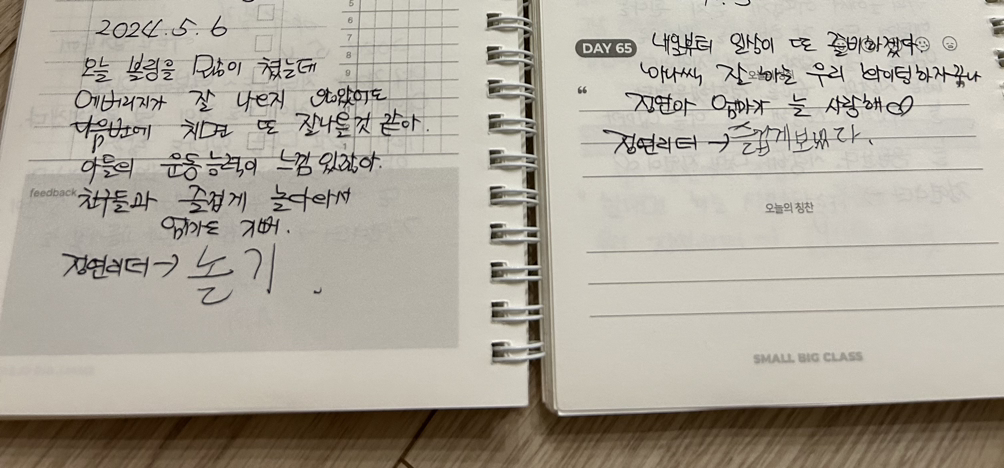 2024.5.6
오늘 볼링을 많이 쳤는데
에버리지가 잘 나오지 않았어도
다음번에 치면 또 잘나올것 같아.
아들의 운동능력이 느낌 있잖아.
feedback 친구들과 즐겁게 놀다와서
엄마도 기뻐.
정연리더→ 놀기.
5
6
7
8
9
DAY 65 내일부터 일상이 또 준비하겠다
잘 하는 우리 화이팅하자꾸나
“ 정연아 엄마가 늘 사랑해♡
정연리더→ 즐겁게보냈다.
오늘의 칭찬
SMALL BIG CLASS